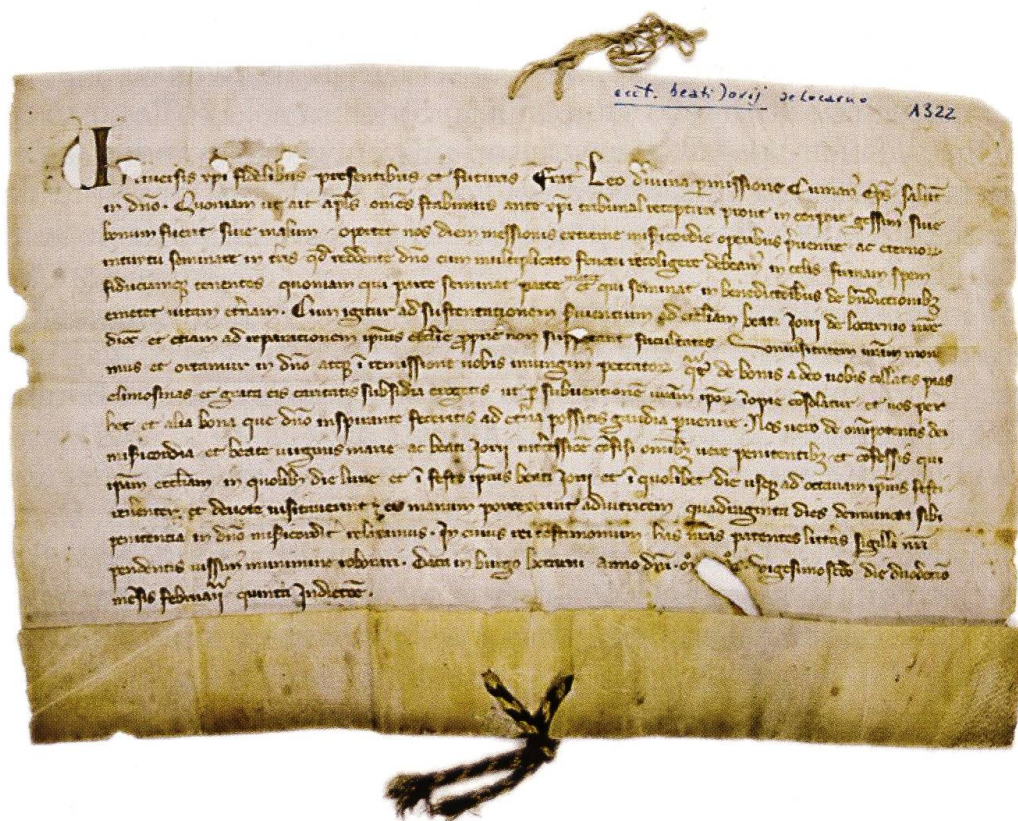 eccl. beati Jorij de Locarno
1322
Universis xpi fidelibus presentibus et futuris Frater Leo divina permissione Cuman eps salut
in dno. Quoniam ut ait apls omes stabimus ante xpi tribunal recepturi prout in corpore gessim sive
bonum fuerit sive malum. oportet nos diem messionis extreme misericordie operibus pvenire ac eternor
intuitu seminare in tris qd reddente dno cum multiplicato fructu recoligere debeam in celis firmam spem
fiduciamqz tenentes quoniam qui parce seminat parce et qui seminat in benedictionibus de bndictionibz
et metet vitam etnam. Cum igitur ad sustentationem ad eccliam beati Jorii de locarno nre
dioc et etiam ad reparationem ipius ecclie pprie non suppetant facultates Universitatem vram mon
mus et ortamur in dno atqz i remissione vobis iniungim peccator qtz de bonis a deo vobis collatis pias
elimosinas et grata eis caritatis subsidia erogetis ut p subventione vram ipor iopie cosolatur et vos per
hec et alia bona que dno inspirante feceritis ad etna possitis gaudia pvenire. Nos vero de omipotentis dei
misicordia et beate virginis marie ac beati Jorii intcessione cofisi omibz vere penitentibz et cofessis qui
ipam eccliam in quolibz die lune et i festo ipius beati Jorii et i quolibet die usqz ad octavam ipius festi
revenenter et devote visitaverint z eis manum porexerint adiutricem quadraginta dies de iniuncta sibi
penitencia in dno misicordit relaxamus. In cuius rei testimonium has nras patentes litteras sigilli nri
pendentis iussim munimine roborari. Data in burgo anno dni vigesimoscdo die duodecimo
mesis februarii quinta Indictoe.